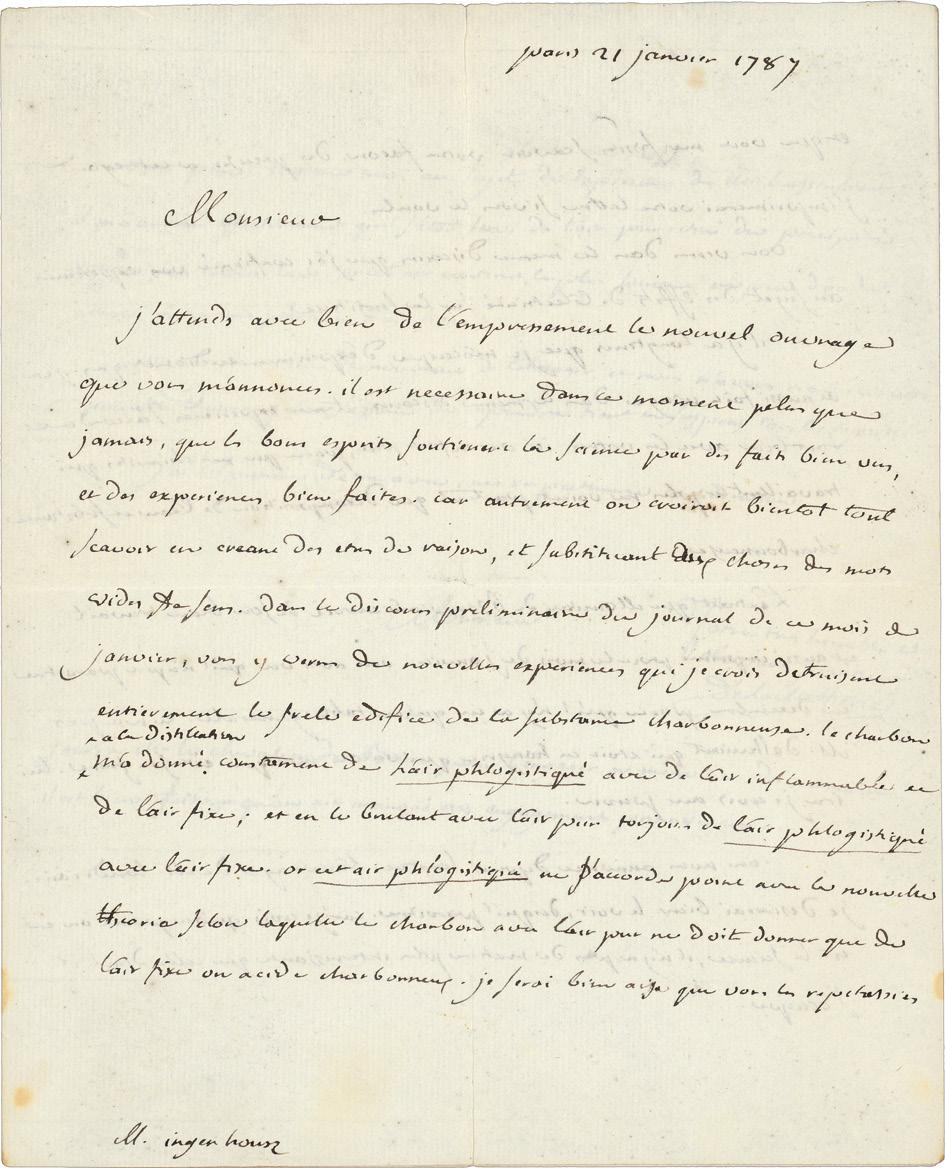 paris 21 janvier 1787
Monsieur
j'attends avec bien de l'empressement le nouvel ouvrage
que vous m'annonces. il est necessaire dans ce moment plus que
jamais, que les bons esprits soutiennent la science par des faits bien vus,
et des experiences bien faites. car autrement on croiroit bientot tout
scavoir en creant des etres de raison, et substituant aux choses des mots
vides de sens. dans le discours preliminaire du journal de ce mois de
janvier, vous y verres de nouvelles experiences qui je crois detruisent
entierement le frele edifice de la substance charbonneuse. le charbon
a la distillation
m'a donné constament de l'air phlogistiqué avec de l'air inflammable et
de l'air fixe; et en le brulant avec l'air pur toujours de l'air phlogistiqué
avec l'air fixe. or cet air phlogistiqué ne s'accorde point avec la nouvelle
theorie selon laquelle le charbon avec l'air pur ne doit donner que de
l'air fixe ou acide charbonneux. je serai bien aise que vous les repetassies
M. ingenhousz